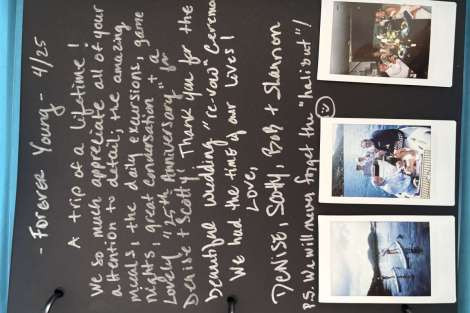 - Forever Young - 4/25
A trip of a Lifetime!
We so much appreciate all of your
attention to detail; the amazing
meals, the daily excursions, game
nights, great conversation + a
Lovely "25th Anniversary" for
Denise + Scotty. Thank you for the
beautiful wedding "re-vow" Ceremo
We had the time of our lives!
Love,
Denise, Scotty, Bob + Shannon
P.S. We will never forget the "halibut"!